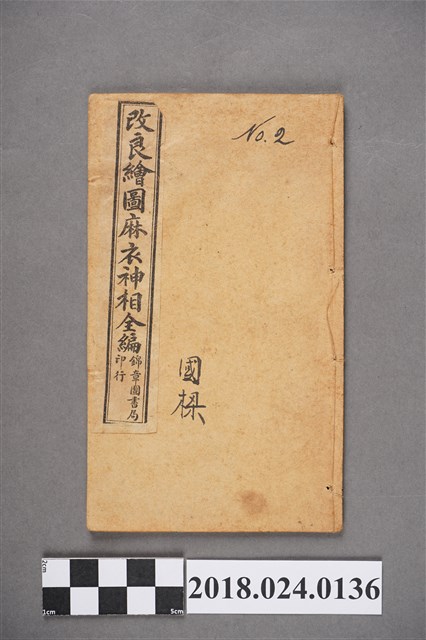 改良繪圖麻衣神相全編
錦章圖書局
印行
No. 2
國樑
2cm
1cm
5cm
2018.024.0136